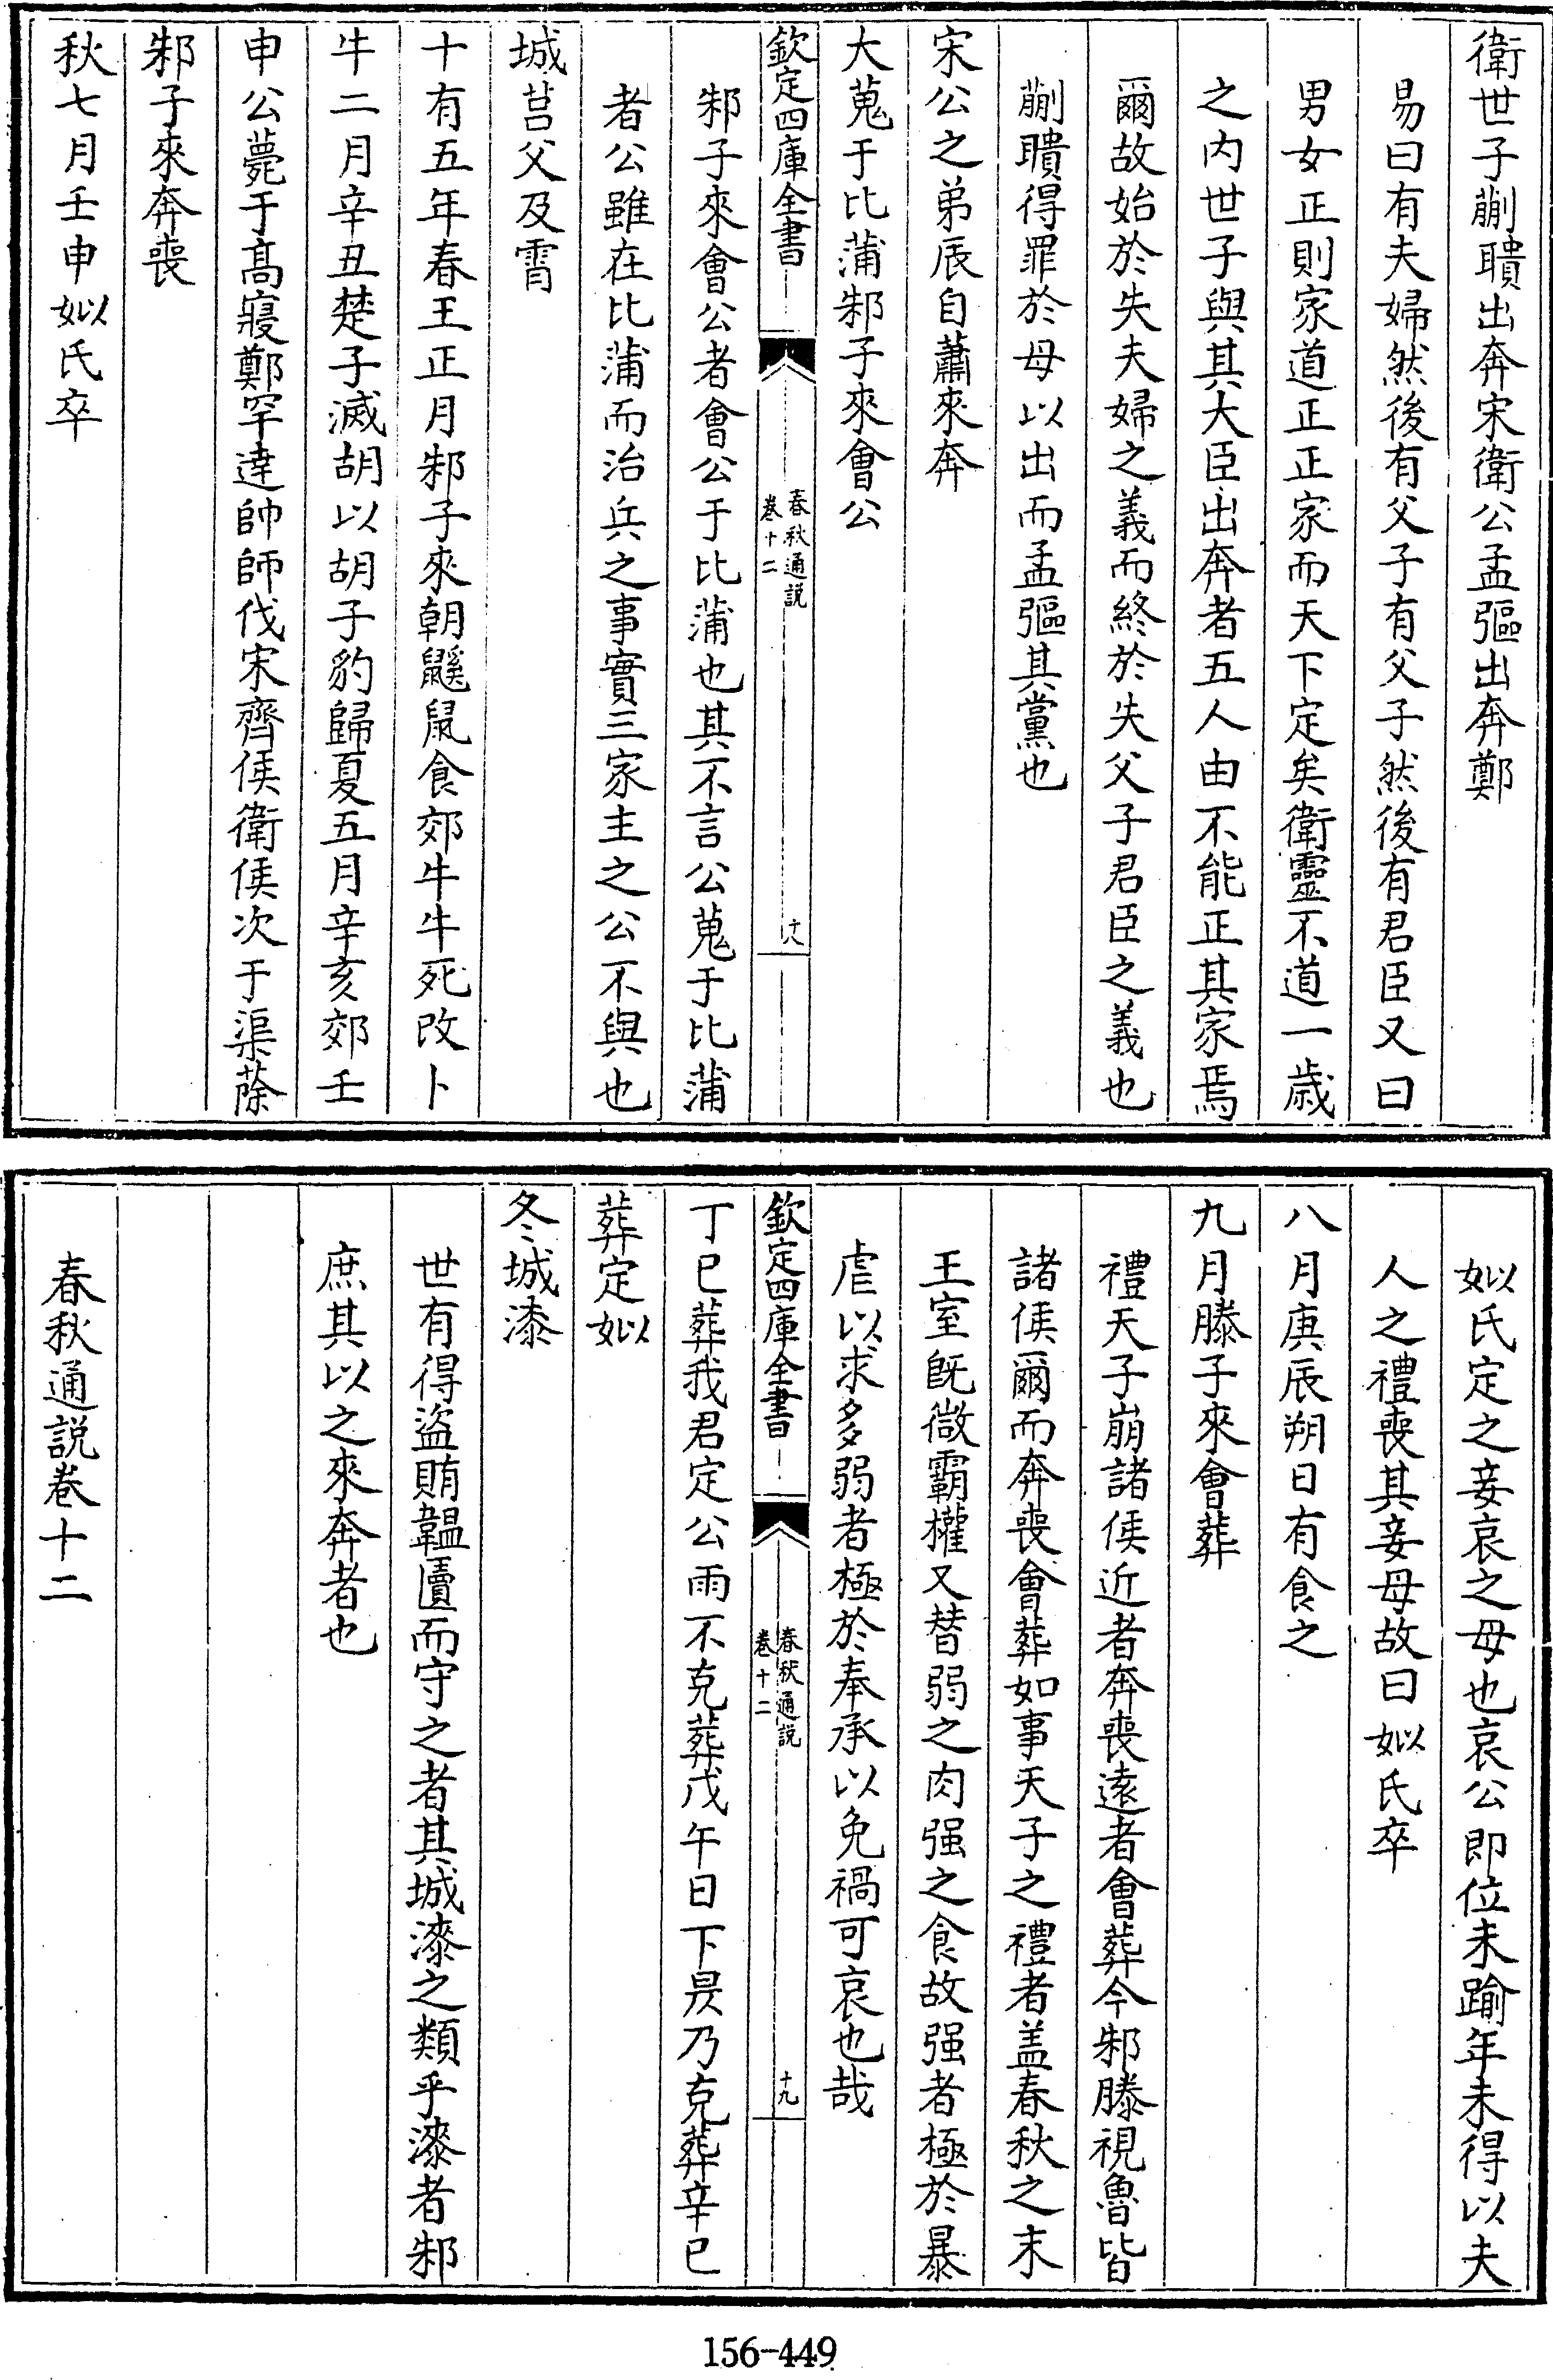 衛世子蒯聵出奔宋衛公孟彄出奔鄭
易曰有夫婦然後有父子有父子然後有君臣又曰
男女正則家道正正家而天下定矣衛靈不道一歳
之内世子與其大臣出奔者五人由不能正其家焉
爾故始於失夫婦之義而終於失父子君臣之義也
蒯聵得罪於母以出而孟彄其黨也
宋公之弟辰自蕭來奔
大蒐于比蒲邾子來會公
欽定四庫全書
春秋通説
卷十二
十八
邾子來會公者會公于比蒲也其不言公蒐于比蒲
者公雖在比蒲而治兵之事實三家主之公不與也
城莒父及霄
十有五年春王正月邾子來朝鼷鼠食郊牛牛死改卜
牛二月辛丑楚子滅胡以胡子豹歸夏五月辛亥郊壬
申公薨于髙寢鄭罕逹帥師伐宋齊侯衛侯次于渠蒢
邾子來奔喪
秋七月壬申姒氏卒
姒氏定之妾哀之母也哀公即位未踰年未得以夫
人之禮喪其妾母故曰姒氏卒
八月庚辰朔日有食之
九月滕子來會葬
禮天子崩諸侯近者奔喪遠者會葬今邾滕視魯皆
諸侯爾而奔喪會葬如事天子之禮者盖春秋之末
王室旣微霸權又替弱之肉强之食故强者極於暴
虐以求多弱者極於奉承以免禍可哀也哉
欽定四庫全書
春秋通説
卷十二
十九
丁巳葬我君定公雨不克葬戊午日下昃乃克葬辛巳
葬定姒
冬城漆
世有得盜賄韞匵而守之者其城漆之類乎漆者邾
庶其以之來奔者也
春秋通説卷十二
156-449